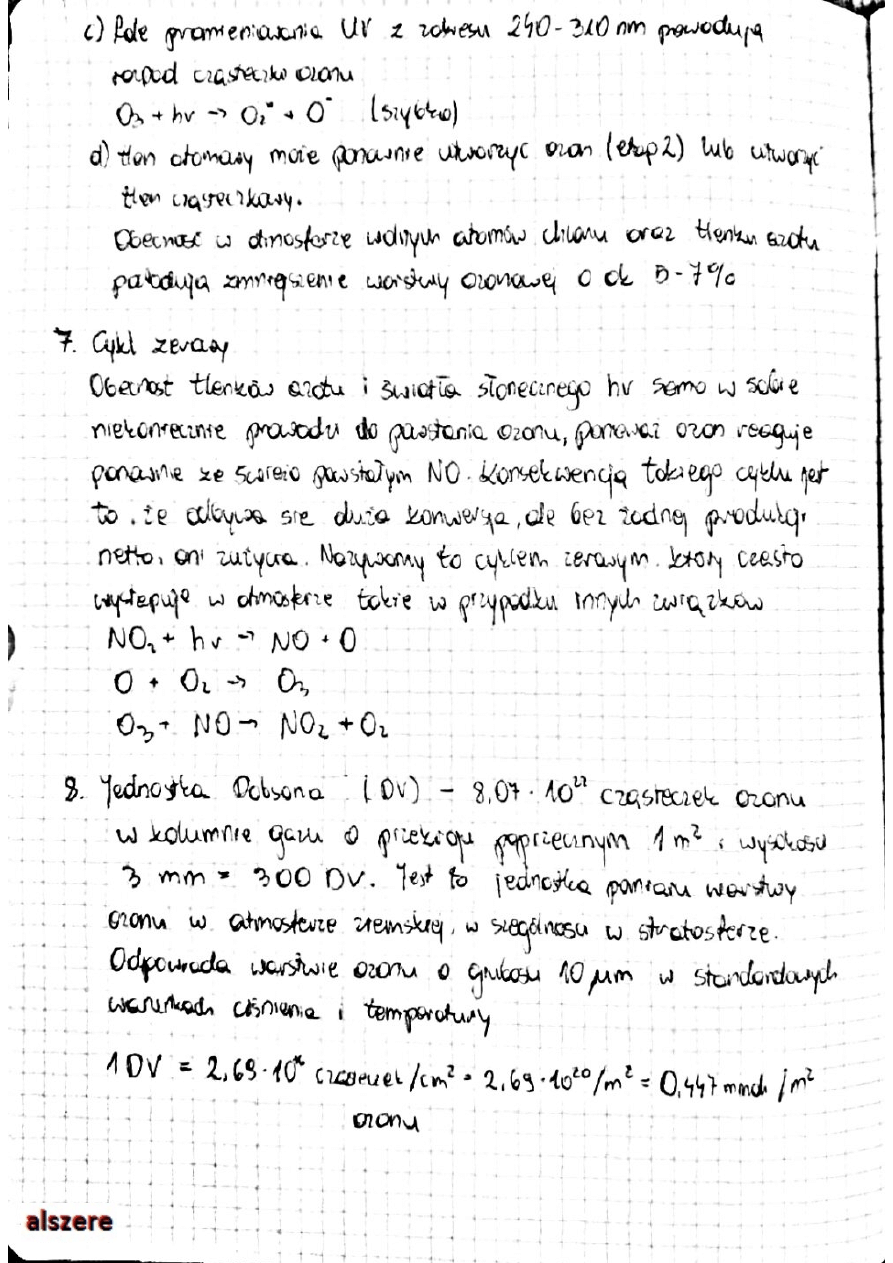 c) Pole promieniowania UV z zakresu 240-310 nm powodują
rozpad cząsteczki ozonu
O₃ + hv → O₂* + O* (szybko)
d) tlen atomowy może ponownie utworzyć ozon (etap 2) lub utworzyć
tlen cząsteczkowy.
Obecność w atmosferze wolnych atomów chloru oraz tlenku azotu
powodują zmniejszenie warstwy ozonowej o ok 5-7%
7. Cykl zerowy
Obecność tlenków azotu i światła słonecznego hv samo w sobie
niekoniecznie prowadzi do powstania ozonu, ponieważ ozon reaguje
ponownie ze świeżo powstałym NO. Konsekwencją takiego cyklu jest
to, że odbywa się duża konwersja, ale bez żadnej produkcji
netto, ani zużycia. Nazywamy to cyklem zerowym, który często
występuje w atmosferze także w przypadku innych związków
NO₂ + hv → NO + O
O + O₂ → O₃
O₃ + NO → NO₂ + O₂
8. Jednostka Dobsona (DV) - 8,07 · 10²² cząsteczek ozonu
w kolumnie gazu o przekroju poprzecznym 1 m² i wysokości
3 mm = 300 DV. Jest to jednostka pomiaru warstwy
ozonu w atmosferze ziemskiej, w szególności w stratosferze.
Odpowiada warstwie ozonu o grubości 10 μm w standardowych
warunkach ciśnienia i temperatury
1 DV = 2,69 · 10 cząsteczek/cm² = 2,69 · 10²⁰/m² = 0,447 mmol/m²
ozonu
alszere